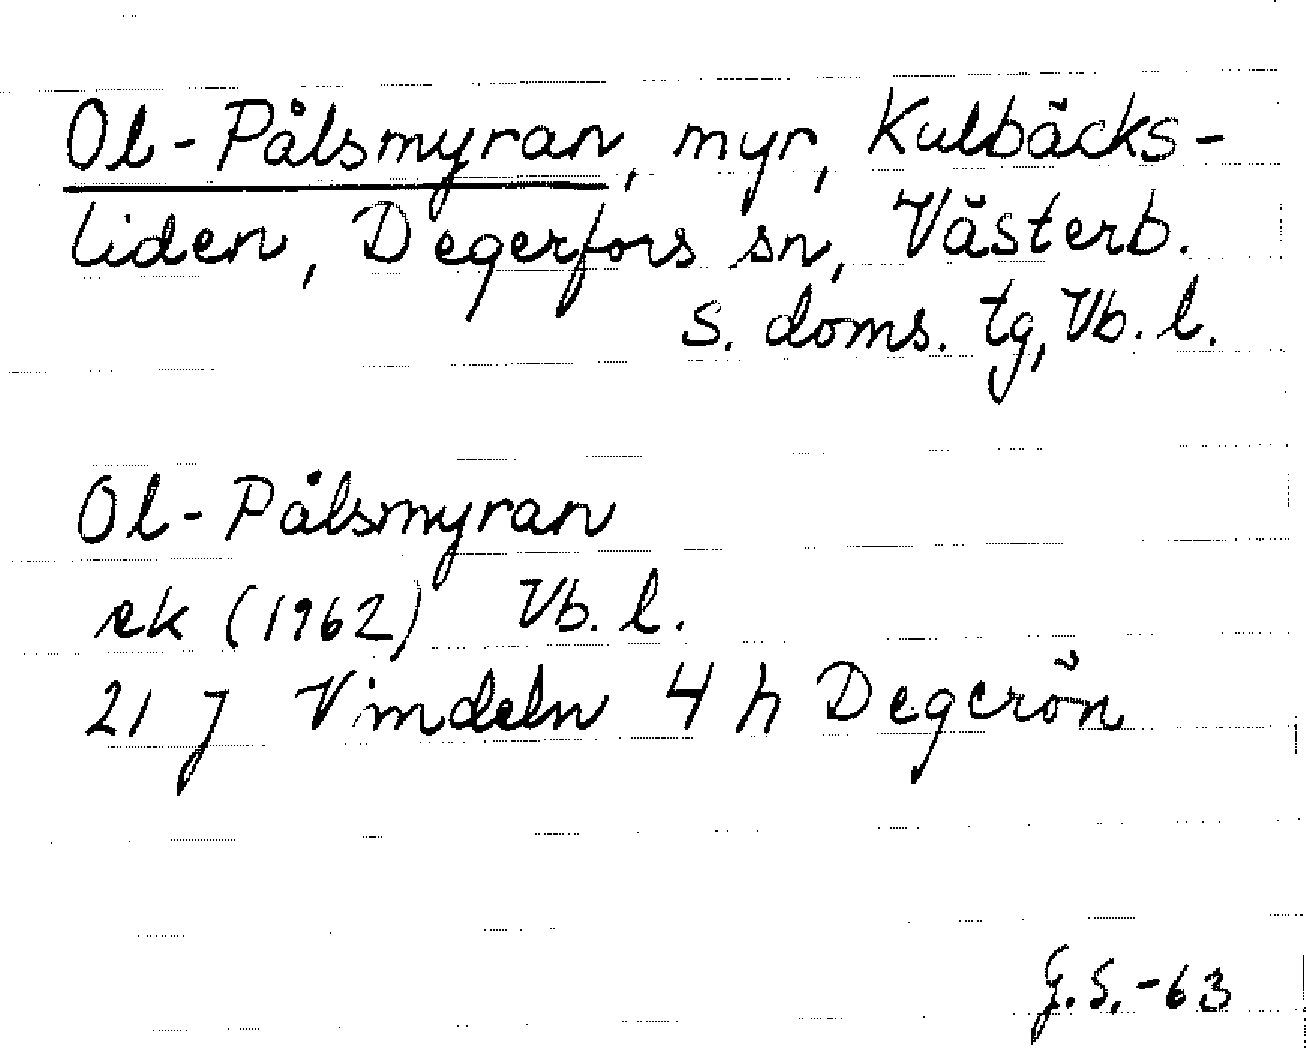 Ol-Pålsmyran, myr, Kulbäcks-
liden, Degerfors sn, Västerb.
s. doms. tg, Vb. l.
Ol-Pålsmyran
ek (1962) Vb. l.
21 J Vindeln 4 h Degerön
G.S.-63